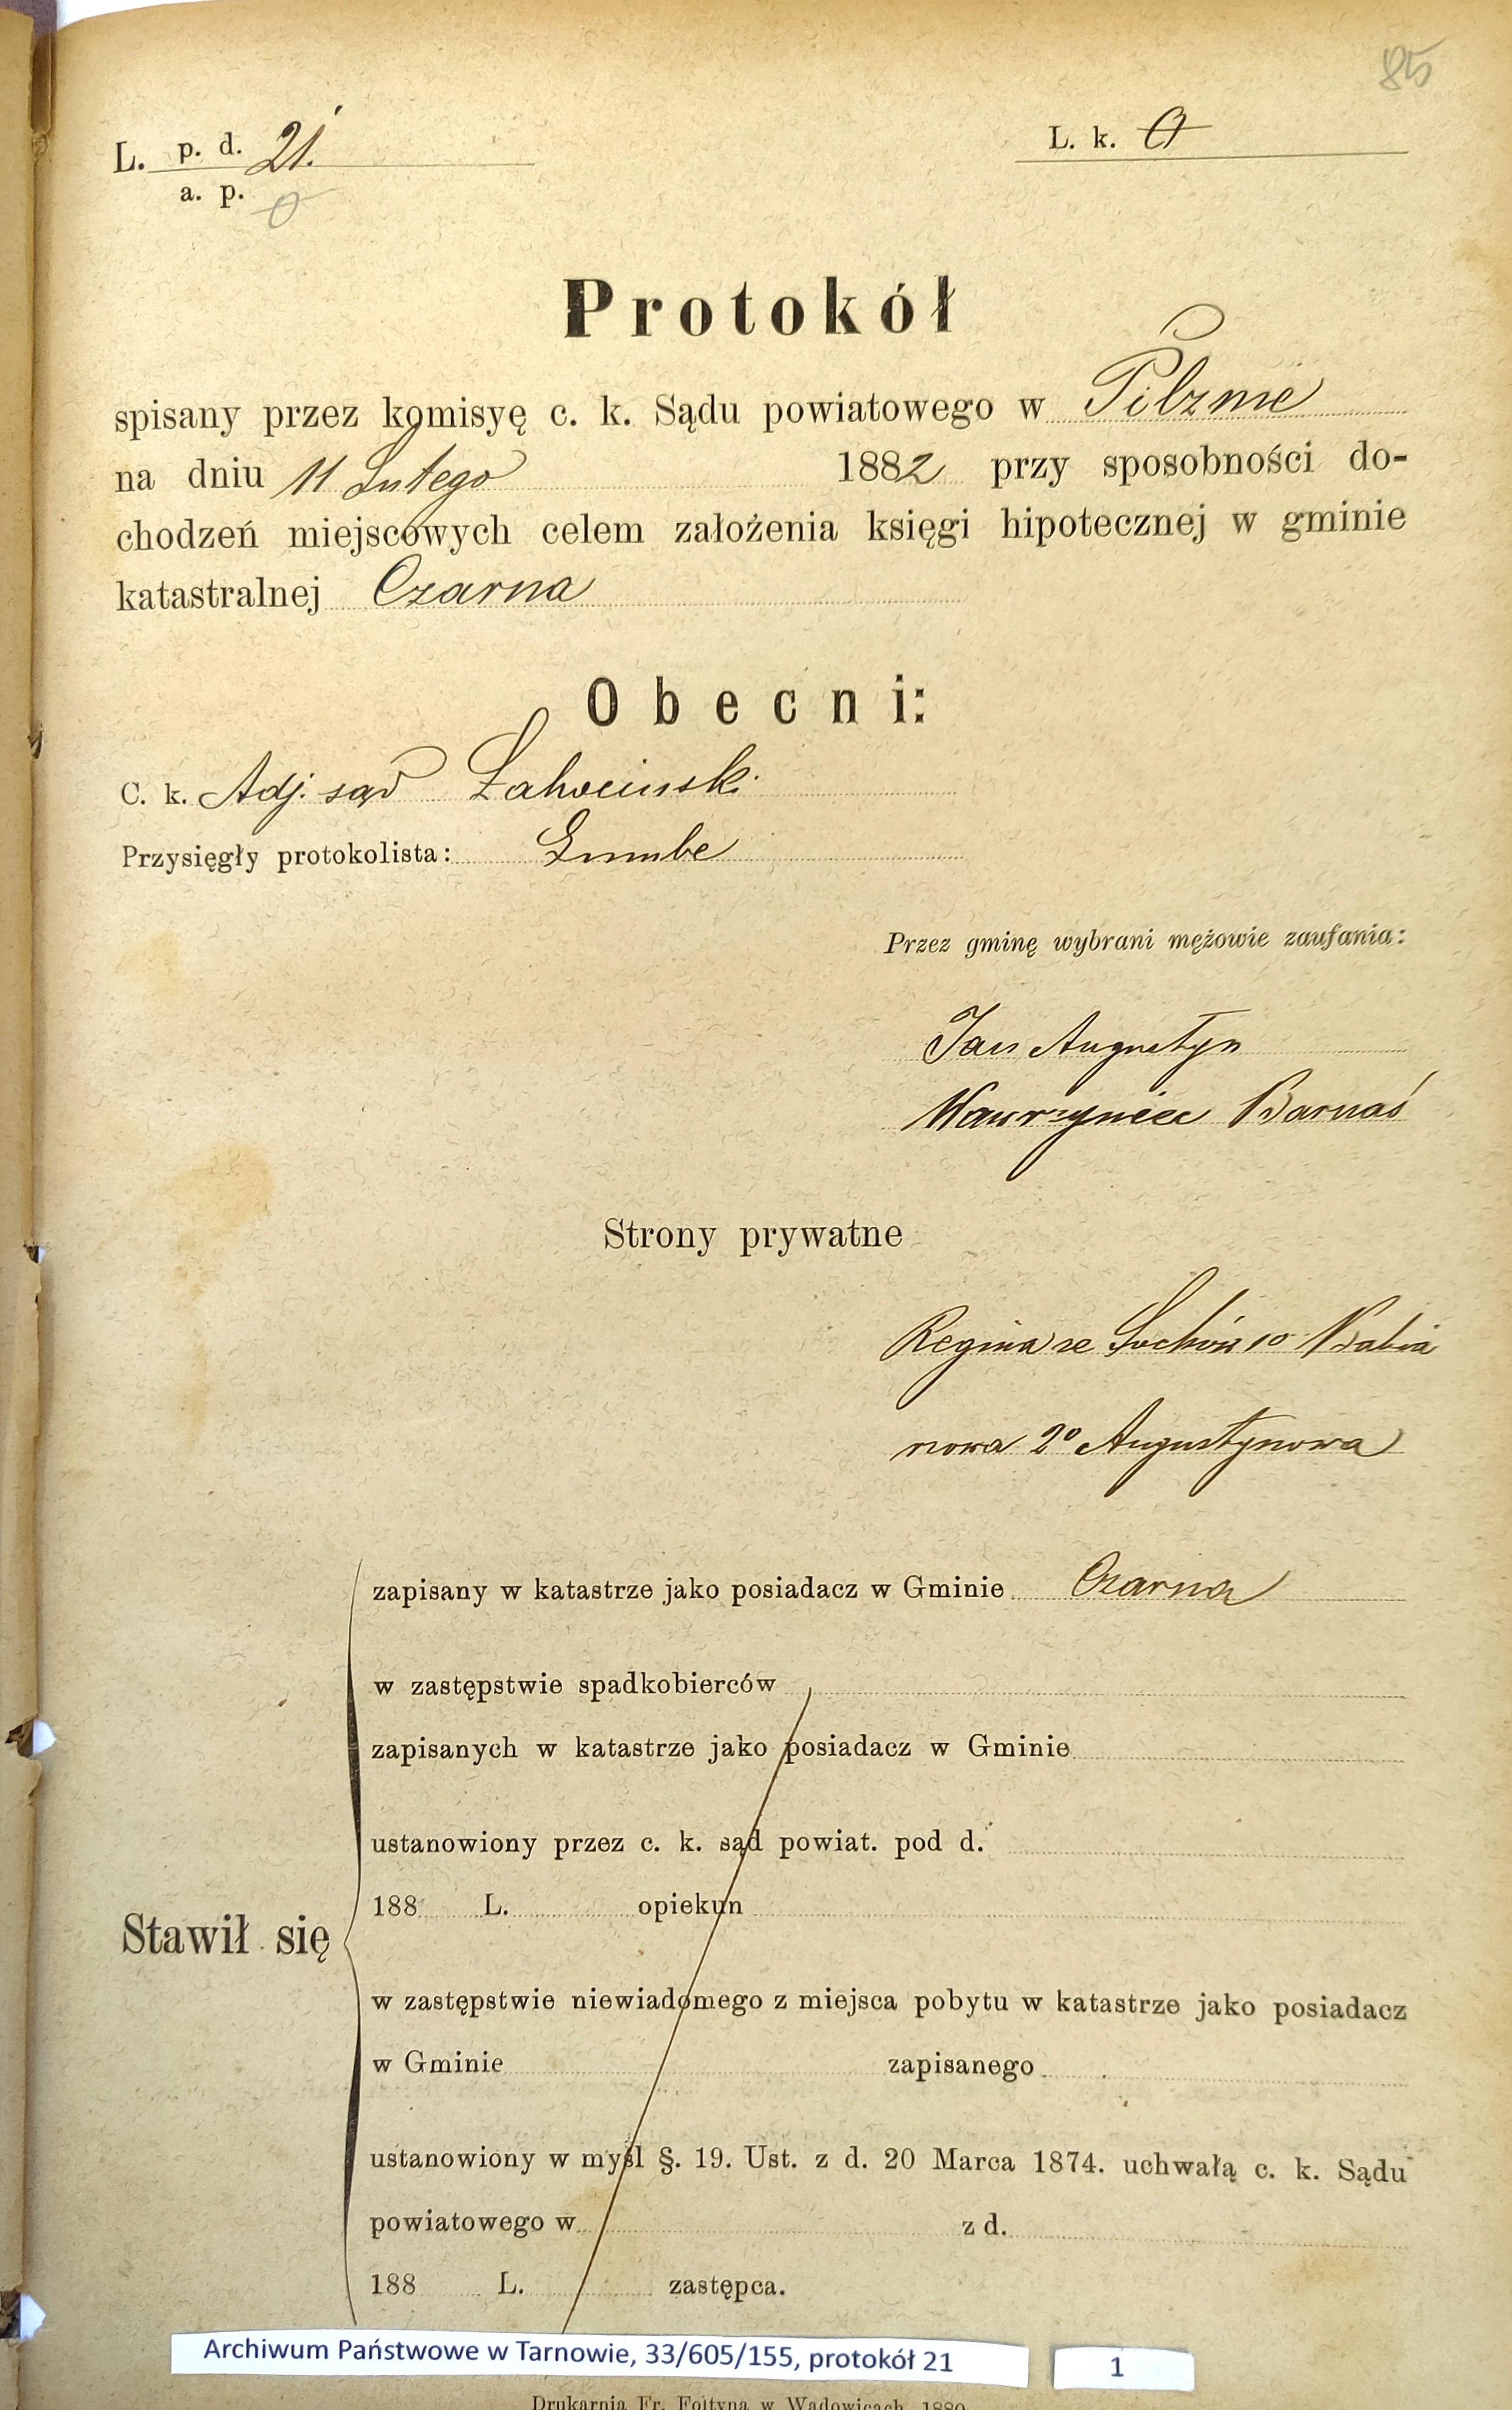 85
L. p. d. 21.
a. p. 0
L. k. 0
Protokół
spisany przez komisyę c. k. Sądu powiatowego w Pilznie
na dniu 11 Lutego 1882 przy sposobności do-
chodzeń miejscowych celem założenia księgi hipotecznej w gminie
katastralnej Czarna
Obecni:
C. k. Adj. sąd
Przysięgły protokolista:
Przez gminę wybrani mężowie zaufania:
Jan Augustyn
Wawrzyniec Barnaś
Strony prywatne
Regina ze 1o Babia
nowa 2o Augustynowa
zapisany w katastrze jako posiadacz w Gminie Czarna
w zastępstwie spadkobierców
zapisanych w katastrze jako posiadacz w Gminie
ustanowiony przez c. k. sąd powiat. pod d.
188 L. opiekun
Stawił się
w zastępstwie niewiadomego z miejsca pobytu w katastrze jako posiadacz
w Gminie zapisanego
ustanowiony w myśl §. 19. Ust. z d. 20 Marca 1874. uchwałą c. k. Sądu
powiatowego w z d.
188 L. zastępca.
Archiwum Państwowe w Tarnowie, 33/605/155, protokół 21
1
Drukarnia Fr. Foltyna w Wadowicach 1880